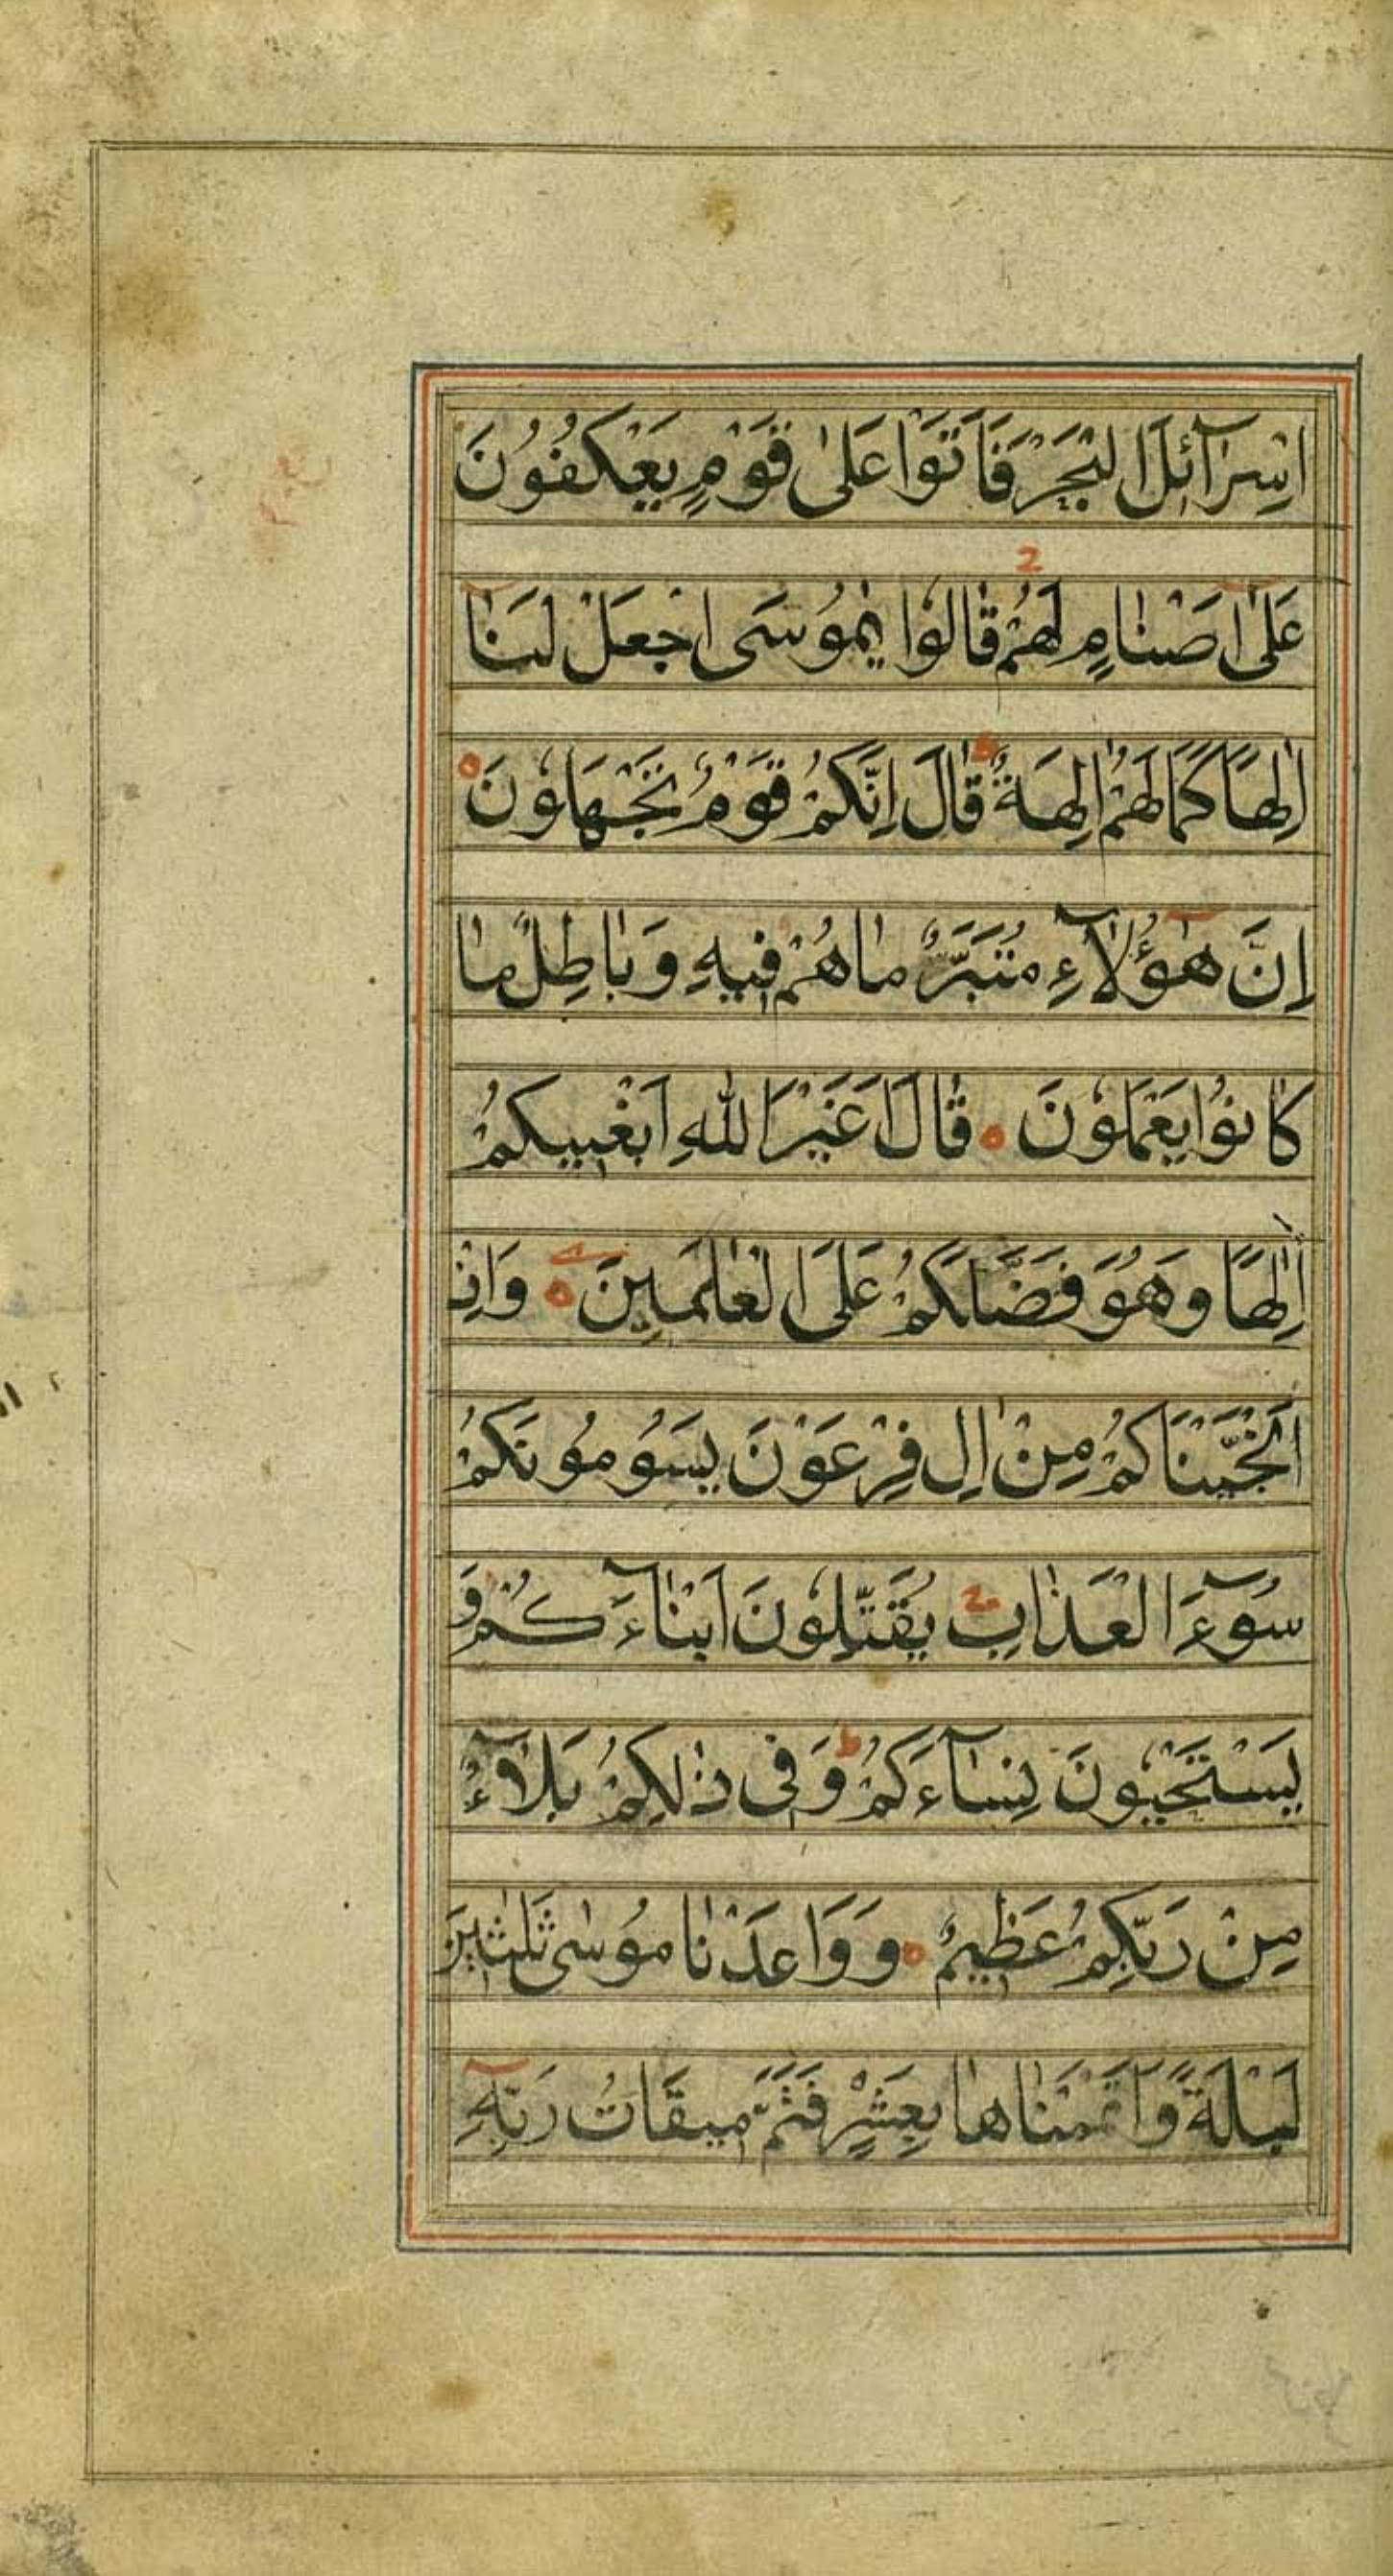 اِسْرَآئلَ الْبَحْرَ فَاَتَوْا عَلٰى قَوْمٍ يَعْكُفُوْنَ
عَلٰٓى اَصْنٰامٍ لَهُمْ قٰالُوْا يٰمُوْسَى اجْعَلْ لَنٰٓا
اِلٰهًا كَمٰا لَهُمْ اٰلِهَةٌ قٰالَ اِنَّكُمْ قَوْمٌ تَجْهَلُوْنَ
اِنَّ هٰٓؤُلٰآءِ مُتَبَّرٌ مٰا هُمْ فِيهِ وَبٰاطِلٌ مٰا
كٰانُوْا يَعْمَلُوْنَ قٰالَ اَغَيْرَ اللّٰهِ اَبْغِيكُمْ
اِلٰهًا وَهُوَ فَضَّلَكُمْ عَلَى الْعٰالَمِينَ وَاِذْ
اَنْجَيْنَاكُمْ مِنْ اٰلِ فِرْعَوْنَ يَسُومُونَكُمْ
سُوٓءَ الْعَذٰابِ يُقَتِّلُوْنَ اَبْنٰآءَكُمْ وَ
يَسْتَحْيُوْنَ نِسٰآءَكُمْ وَفِى ذٰلِكُمْ بَلٰآءٌ
مِنْ رَبِّكُمْ عَظِيمٌ وَوَاعَدْنٰا مُوسٰى ثَلٰثِينَ
لَيْلَةً وَاَتْمَمْنٰاهٰا بِعَشْرٍ فَتَمَّ مِيقَاتُ رَبِّهِٓ